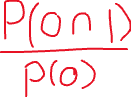 P(0∩1)
P(0)